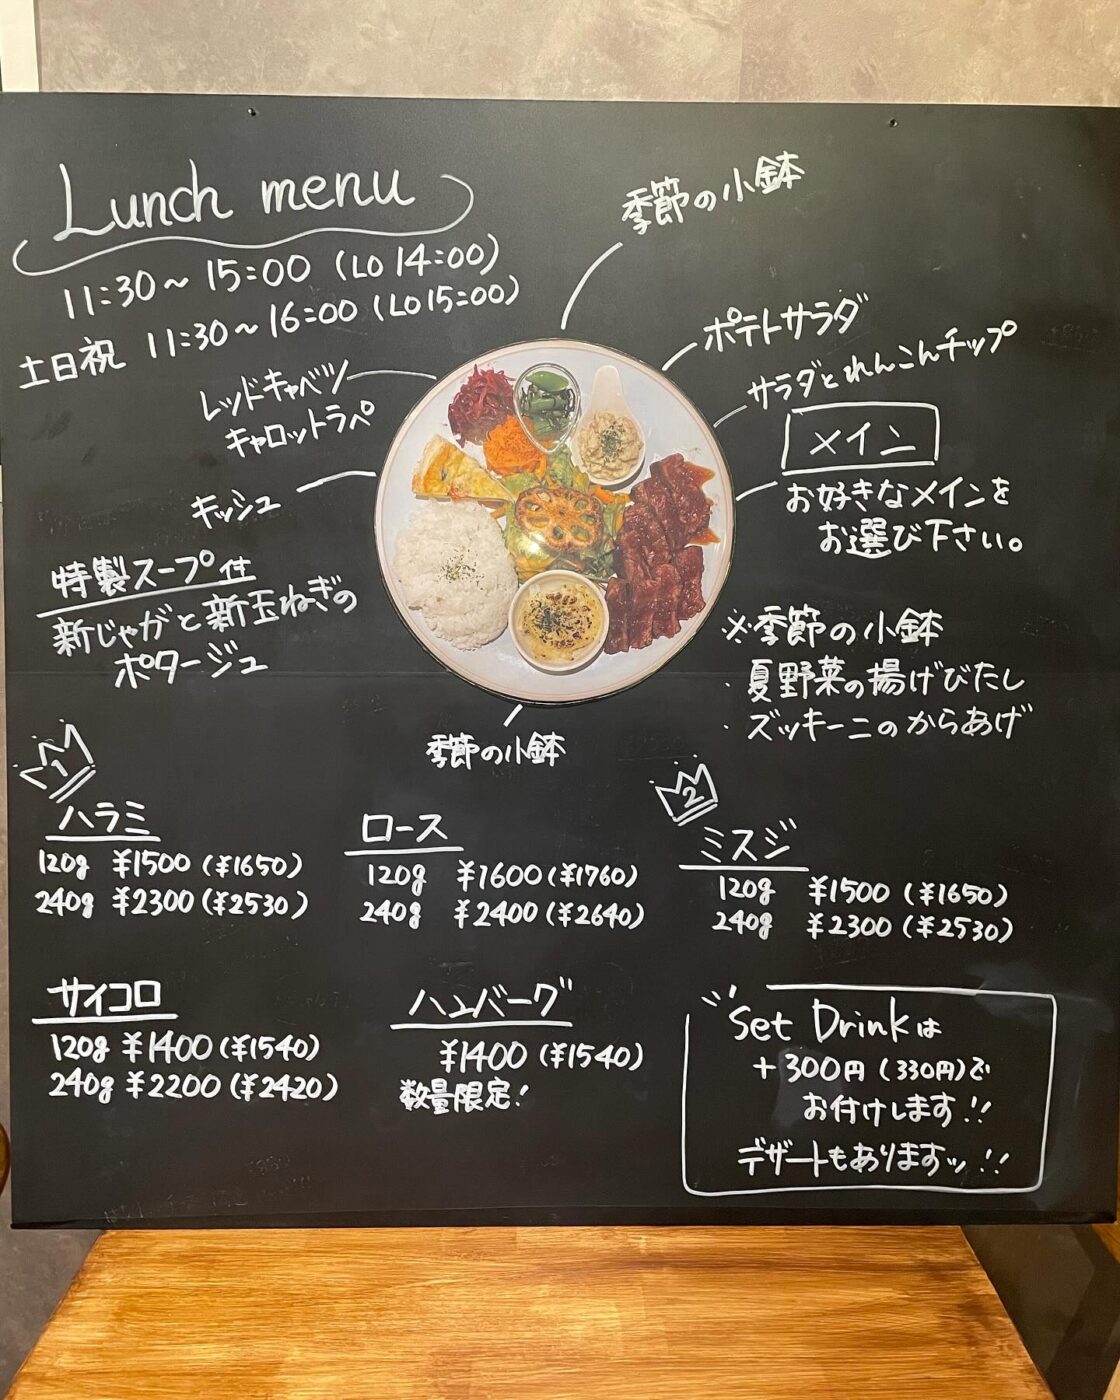 Lunch menu
11:30～15:00 (LO 14:00)
土日祝 11:30～16:00 (LO15:00)
季節の小鉢
ポテトサラダ
サラダとれんこんチップ
メイン
お好きなメインを
お選び下さい。
レッドキャベツ
キャロットラペ
キッシュ
特製スープ付
新じゃがと新玉ねぎの
ポタージュ
季節の小鉢
※季節の小鉢
・夏野菜の揚げびたし
・ズッキーニのからあげ
1
ハラミ
120g ¥1500 (¥1650)
240g ¥2300 (¥2530)
ロース
120g ¥1600 (¥1760)
240g ¥2400 (¥2640)
2
ミスジ
120g ¥1500 (¥1650)
240g ¥2300 (¥2530)
サイコロ
120g ¥1400 (¥1540)
240g ¥2200 (¥2420)
ハンバーグ
¥1400 (¥1540)
数量限定!
Set Drinkは
+300円(330円)で
お付けします!!
デザートもありますッ!!